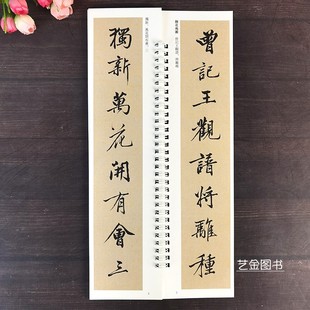 曾記王觀譜將離種
獨新萬花開有會三
艺金图书